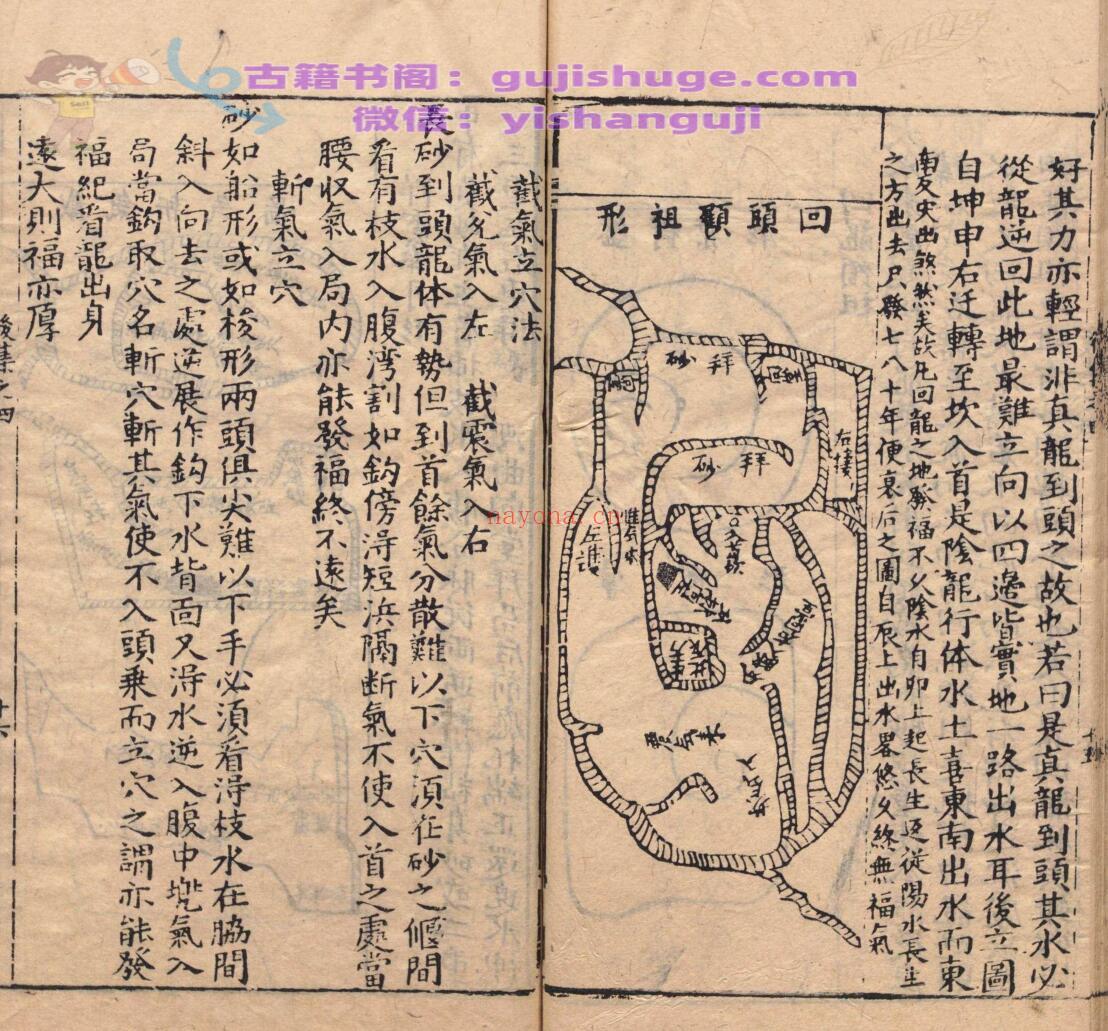 古籍书阁：gujishuge.com
微信：yishanguji
好其力亦輕謂非真龍到頭之故也若曰是真龍到頭其水必
從龍逆回此地最難立向以四邊皆實地一路出水耳後立圖
自坤申右迁轉至坎入首是陰龍行体水土喜東南出水而東
南反史出煞然美故凡回龍之地發福不久陰水自卯上起長生逆從陽水長生
之方出去只發七八十年便衰后之圖自辰上出水畧悠久終無福氣
回頭顧祖形
拜砂
拜砂
右接
截氣立穴法
截兊氣入左 截震氣入右
長砂到頭龍体有勢但到首餘氣分散難以下穴須在砂之偃間
看有枝水入腹湾割如鈎傍淂短浜隔断氣不使入首之處當
腰収氣入局内亦能發福終不遠矣
斬氣立穴
砂如船形或如梭形兩頭俱尖難以下手必須看淂枝水在脇間
斜入向去之處逆展作鈎下水背靣又淂水逆入腹中兠氣入
局當鈎取穴名斬穴斬其氣使不入頭乗而立穴之謂亦能發
福紀看龍出身
遠大則福亦厚
後集之四
nayona.cn